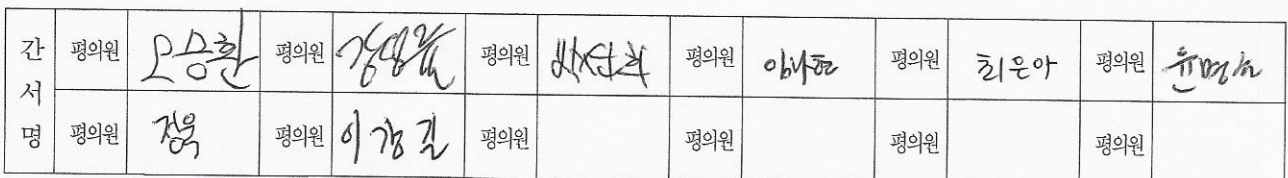 간서명 평의원 오승환 평의원 평의원 평의원 평의원 최은아 평의원
평의원 정욱 평의원 이강길 평의원 평의원 평의원 평의원